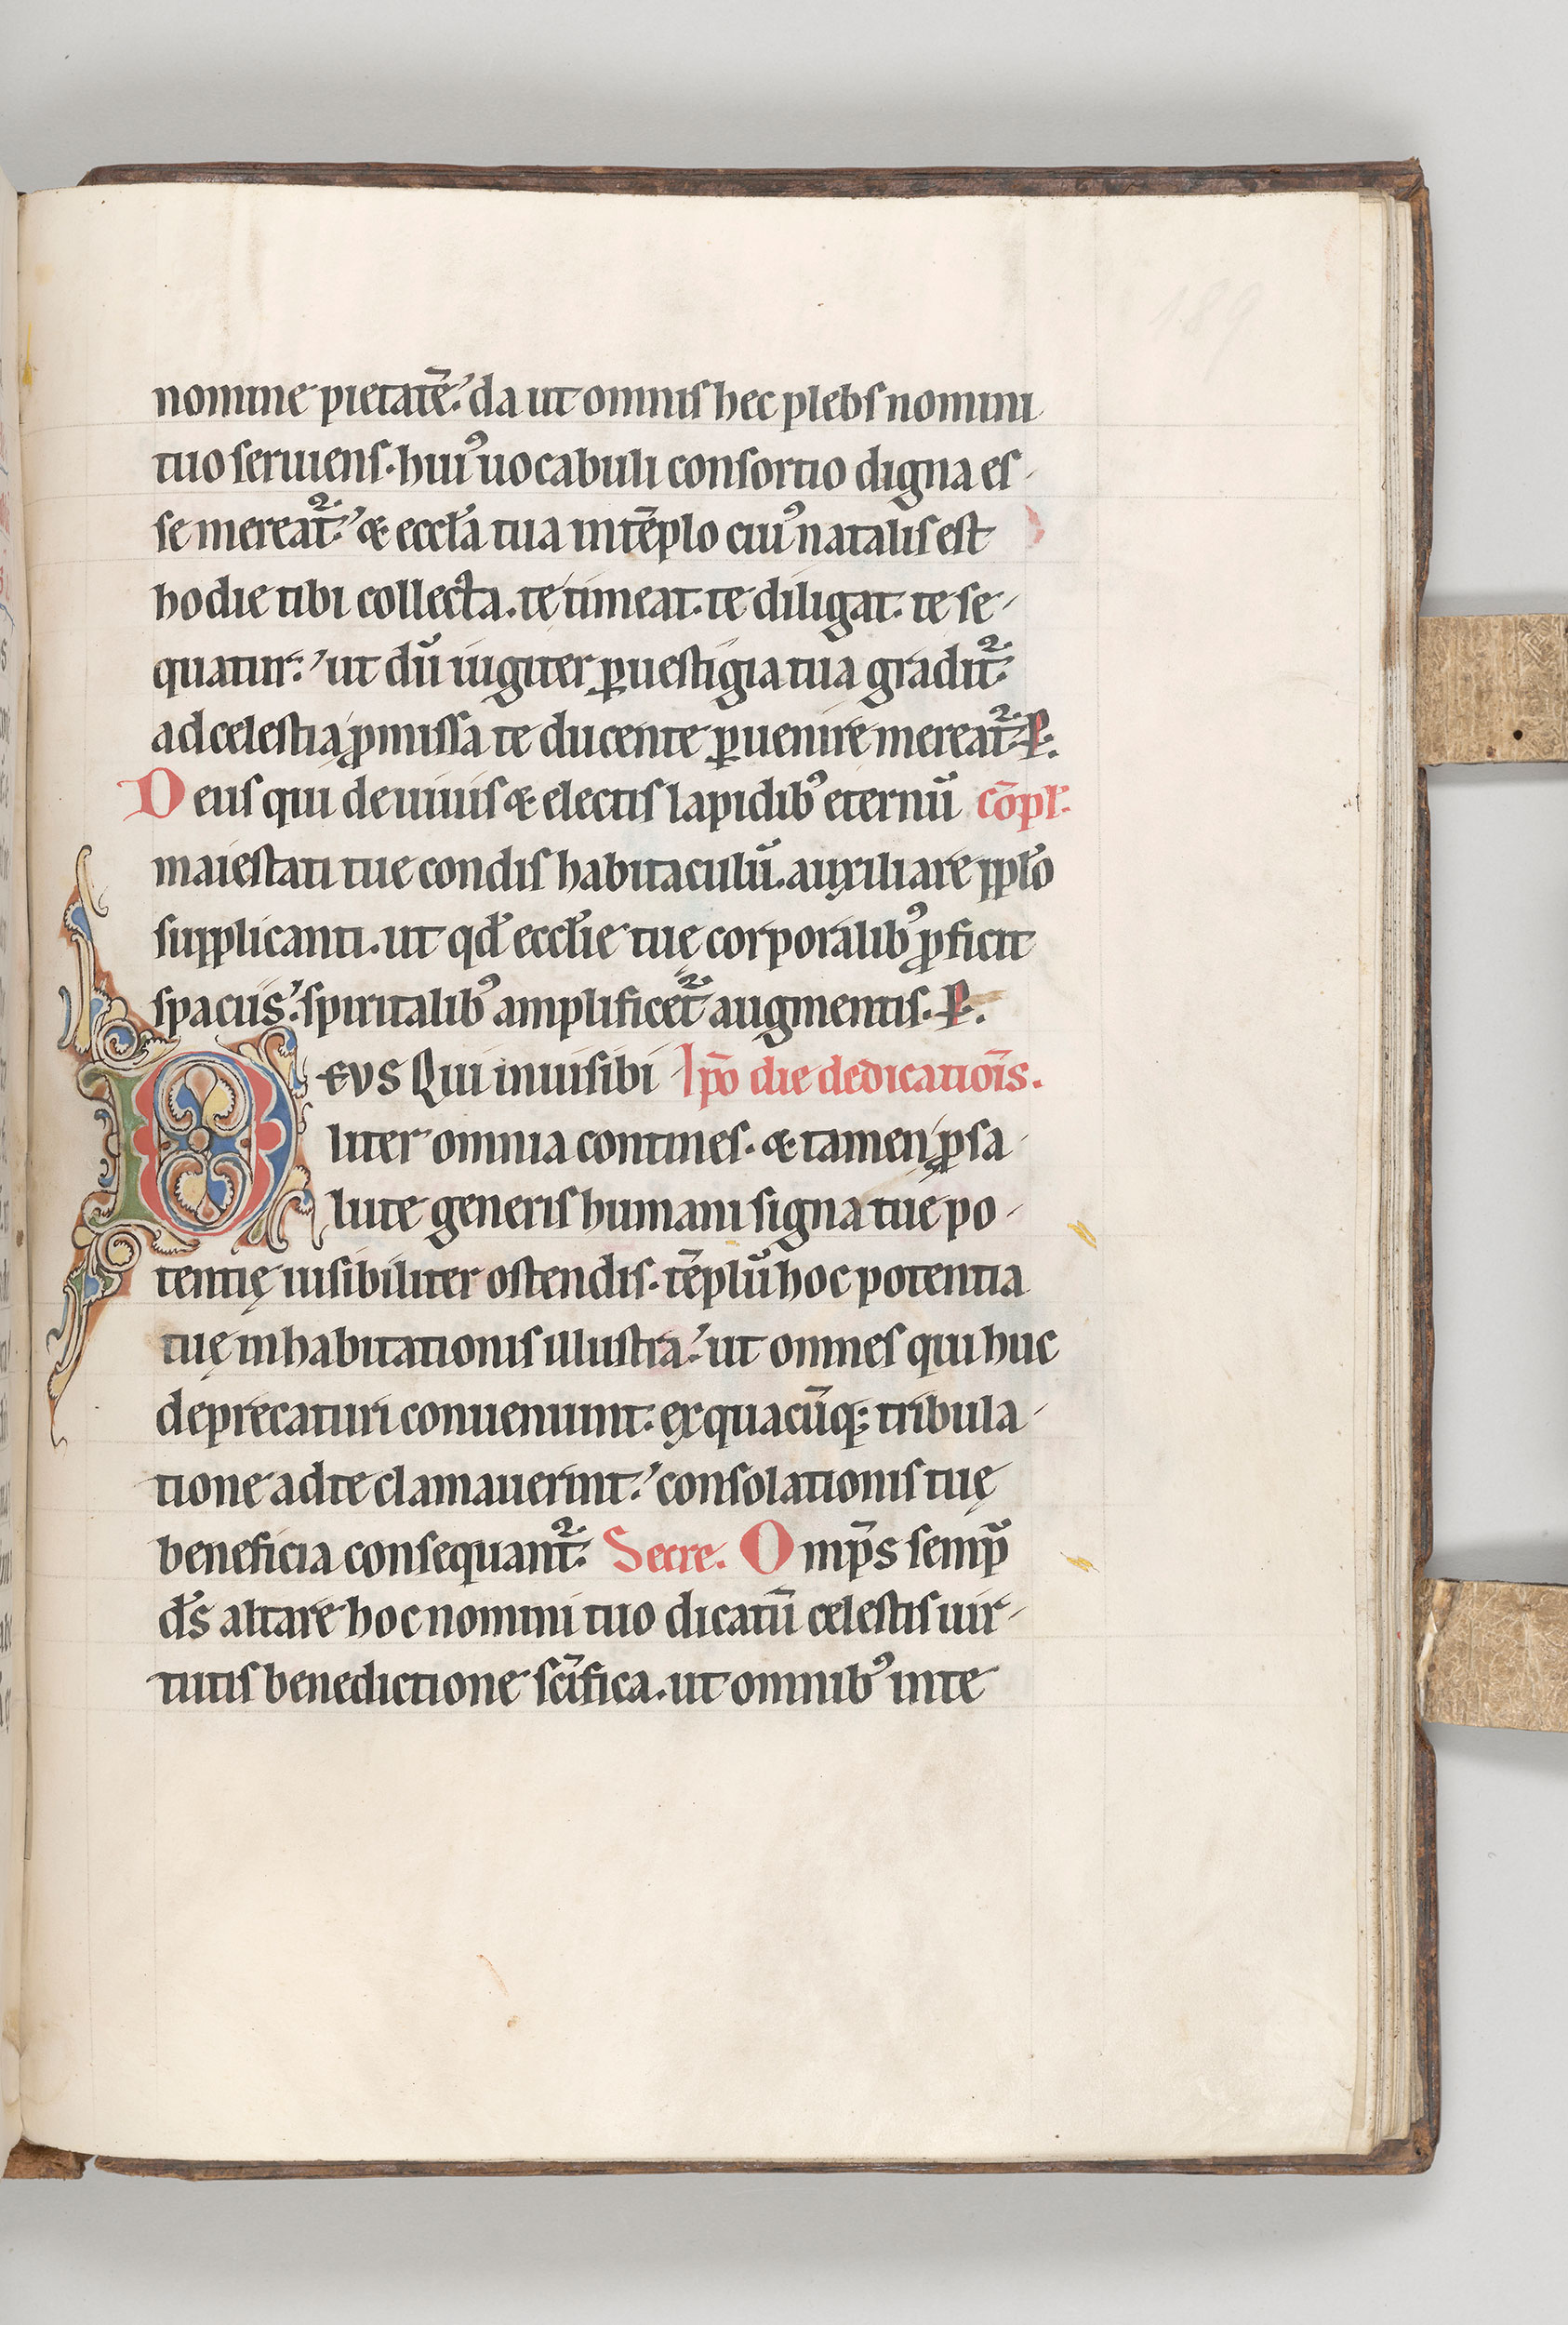 189
nomine pietatē. da ut omnis hec plebs nomini
tuo seruiens. hui᾽ uocabuli consortio digna es-
se mereat᷑. & eccła tua in tēplo cui᾽ natalis est
hodie tibi collecta. te timeat. te diligat. te se-
quatur. ut dū iugiter ꝑ uestigia tua gradit᷑.
ad celestia ꝓmissa te ducente ꝑuenire mereat᷑. P.
Deus qui de uiuis & electis lapidib᾽ eternū cōpł.
maiestati tue condis habitaculū. auxiliare ppło
supplicanti. ut qđ ecclie tuę corporalib᾽ ꝓficit
spaciis. spiritalib᾽ amplificet᷑ augmentis. P.
DEVS Qui inuisibi Ipō die dedicatiōīs.
liter omnia contines. & tamen ꝓ sa-
lute generis humani signa tue po-
tentię uisibiliter ostendis. tēplū hoc potentia
tuę inhabitationis illustra. ut omnes qui huc
deprecaturi conueniunt. ex quacūq; tribula-
tione ad te clamauerint. consolationis tuę
beneficia consequant᷑. Secre. Omp̄s semꝑ
d̄s altare hoc nomini tuo dicatū celestis uir-
tutis benedictione sc̄ifica. ut omnib᾽ in te